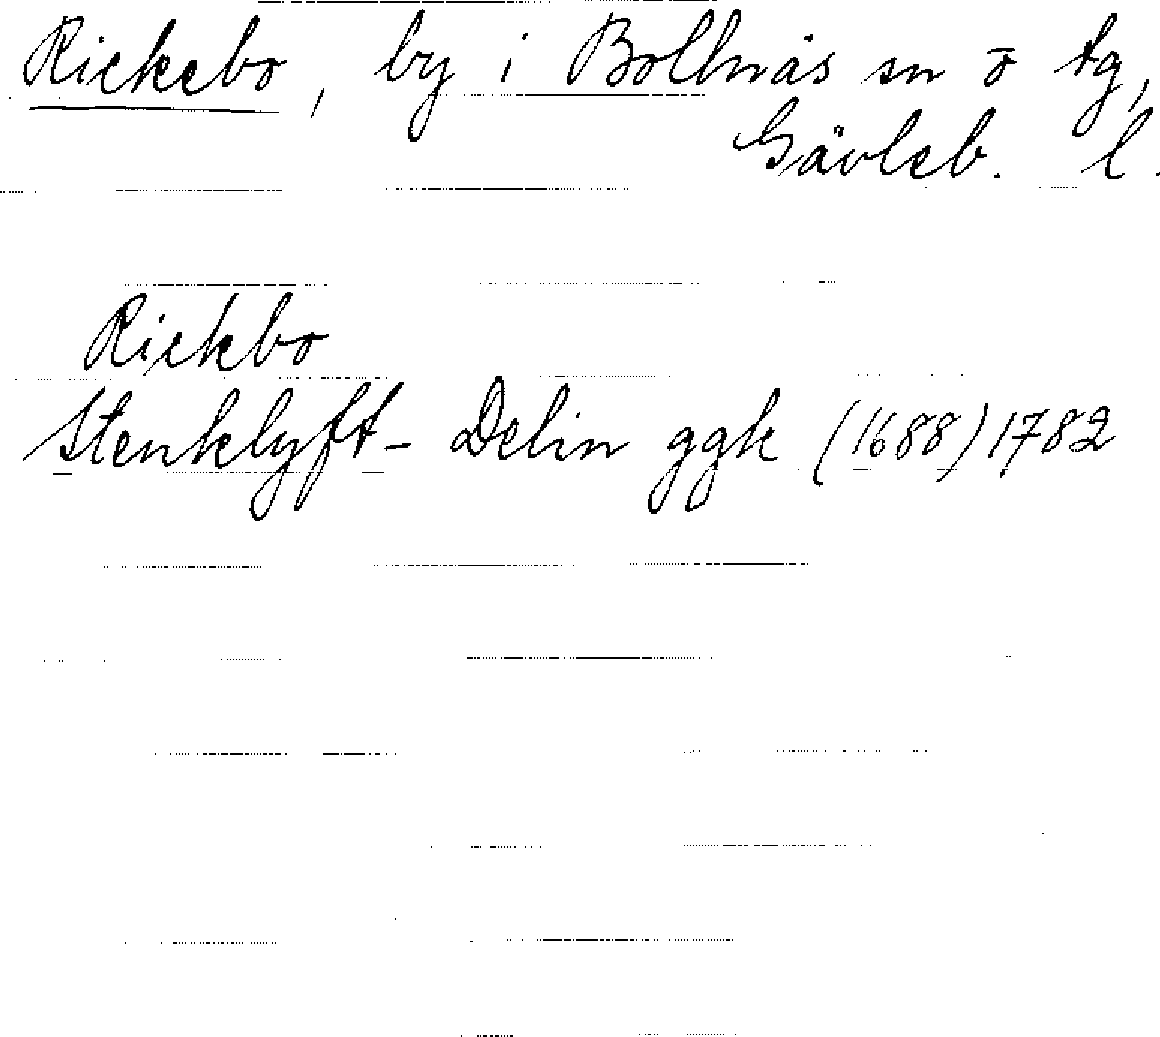 Rickebo, by i Bollnäs sn o tg,
Gävleb. l.
Rickbo
Stenklyft- Delin ggk (1688) 1782